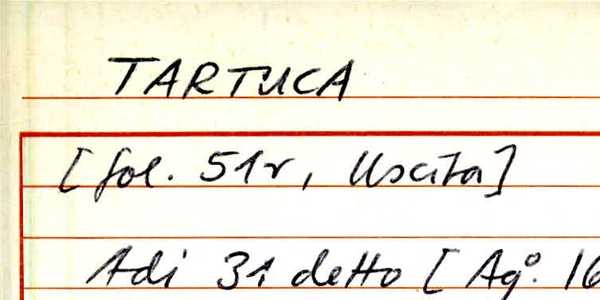 TARTUCA
[fol. 51r, Uscita]
Adi 31 detto [Ag°. 16